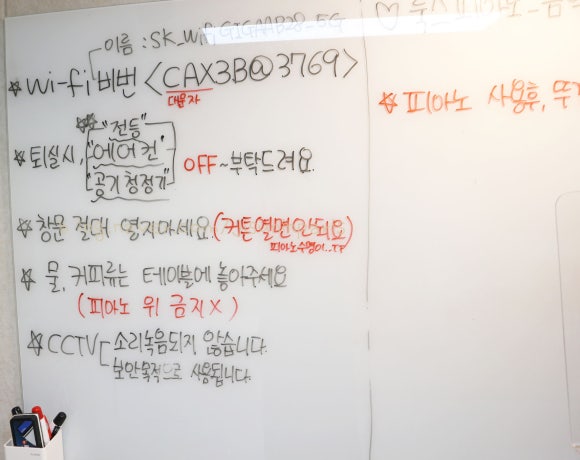 이름 : SK_WiFiGIGAAB28_5G
☆ Wi-fi 비번 <CAX3B@3769>
대문자
☆ 퇴실시, "전등" "에어컨" "공기청정기" OFF~부탁드려요.
☆ 창문 절대 열지마세요.(커튼열면안되요)
피아노수명이..ㅜㅜ
☆ 물, 커피류는 테이블에 놓아주세요
(피아노 위 금지X)
☆ CCTV 소리녹음되지 않습니다.
보안목적으로 사용됩니다.
☆ 피아노 사용후,